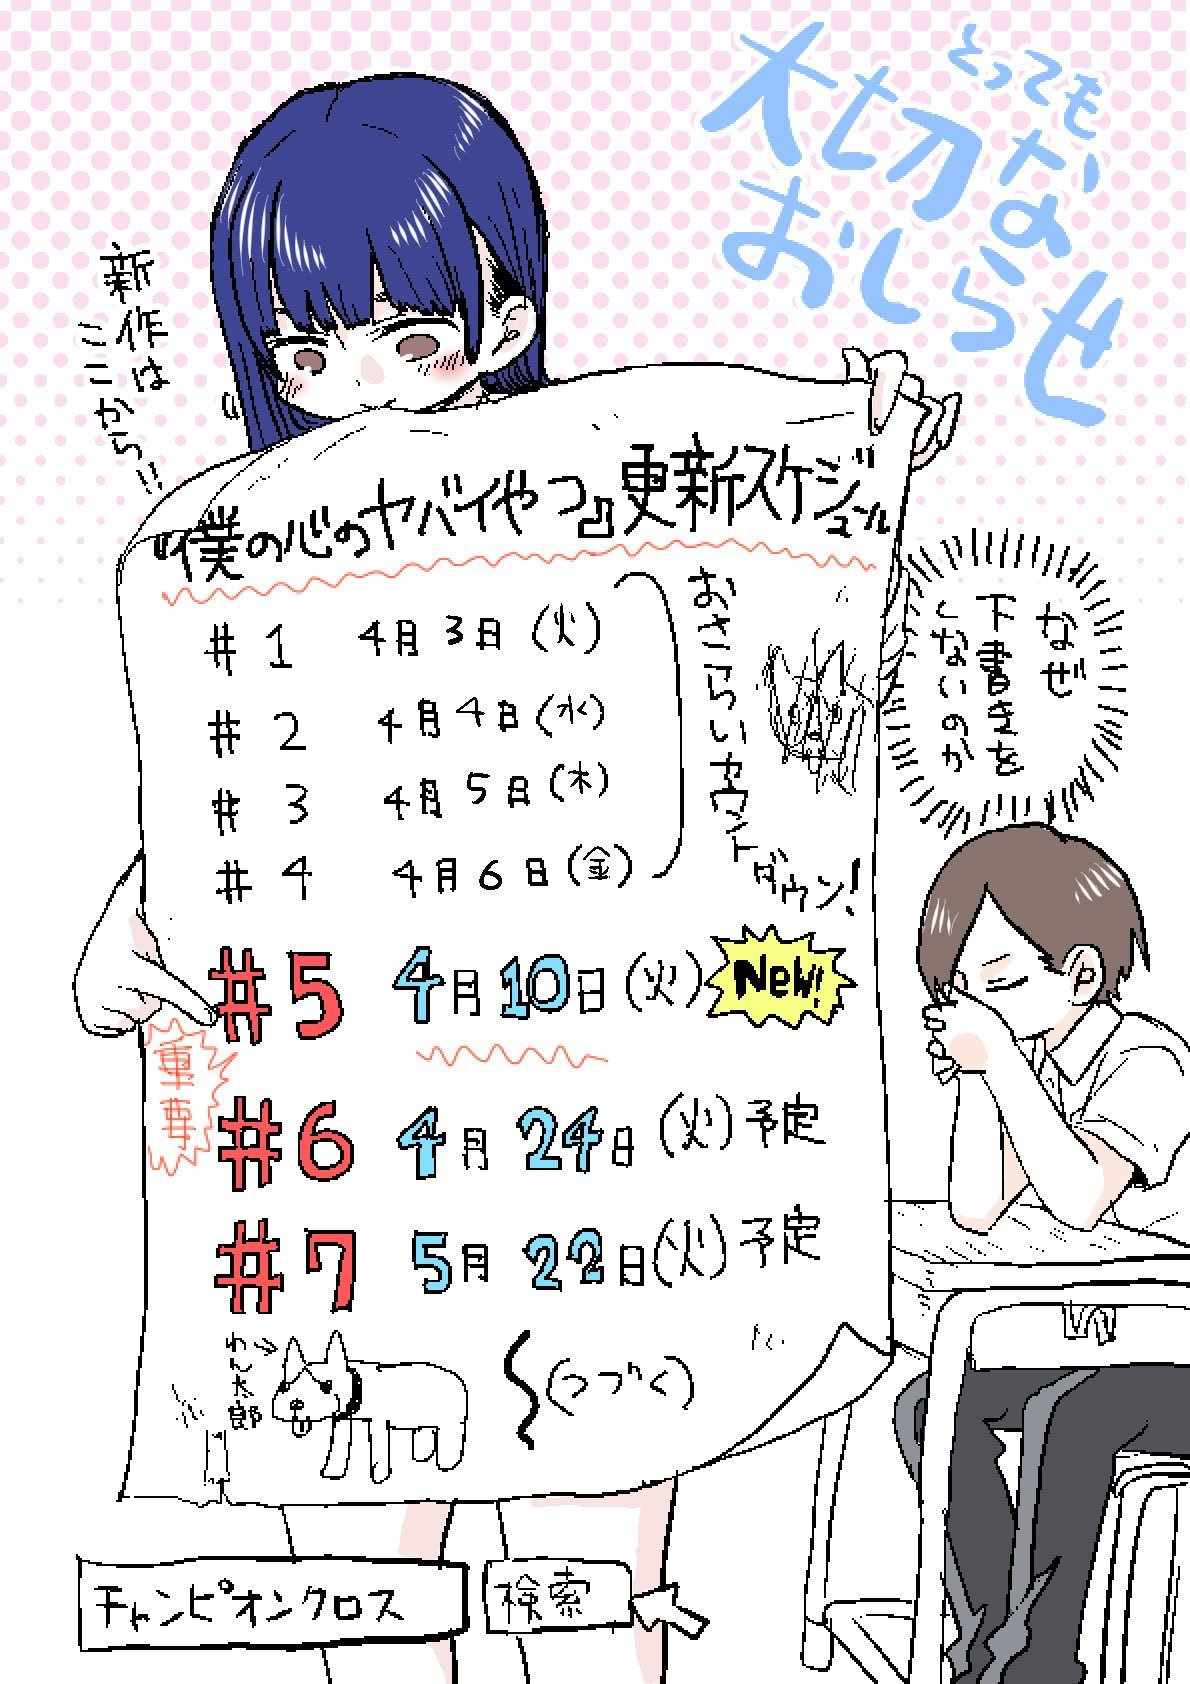 とっても
大切な
おしらせ
新作は
ここから!!
『僕の心のヤバイやつ』更新スケジュール
#1 4月3日(火)
#2 4月4日(水)
#3 4月5日(木)
#4 4月6日(金)
おさらいカウントダウン!
#5 4月10日(火) New!
重要
#6 4月24日(火)予定
#7 5月22日(火)予定
わん太郎
(つづく)
なぜ
下書きを
しないのか
チャンピオンクロス 検索